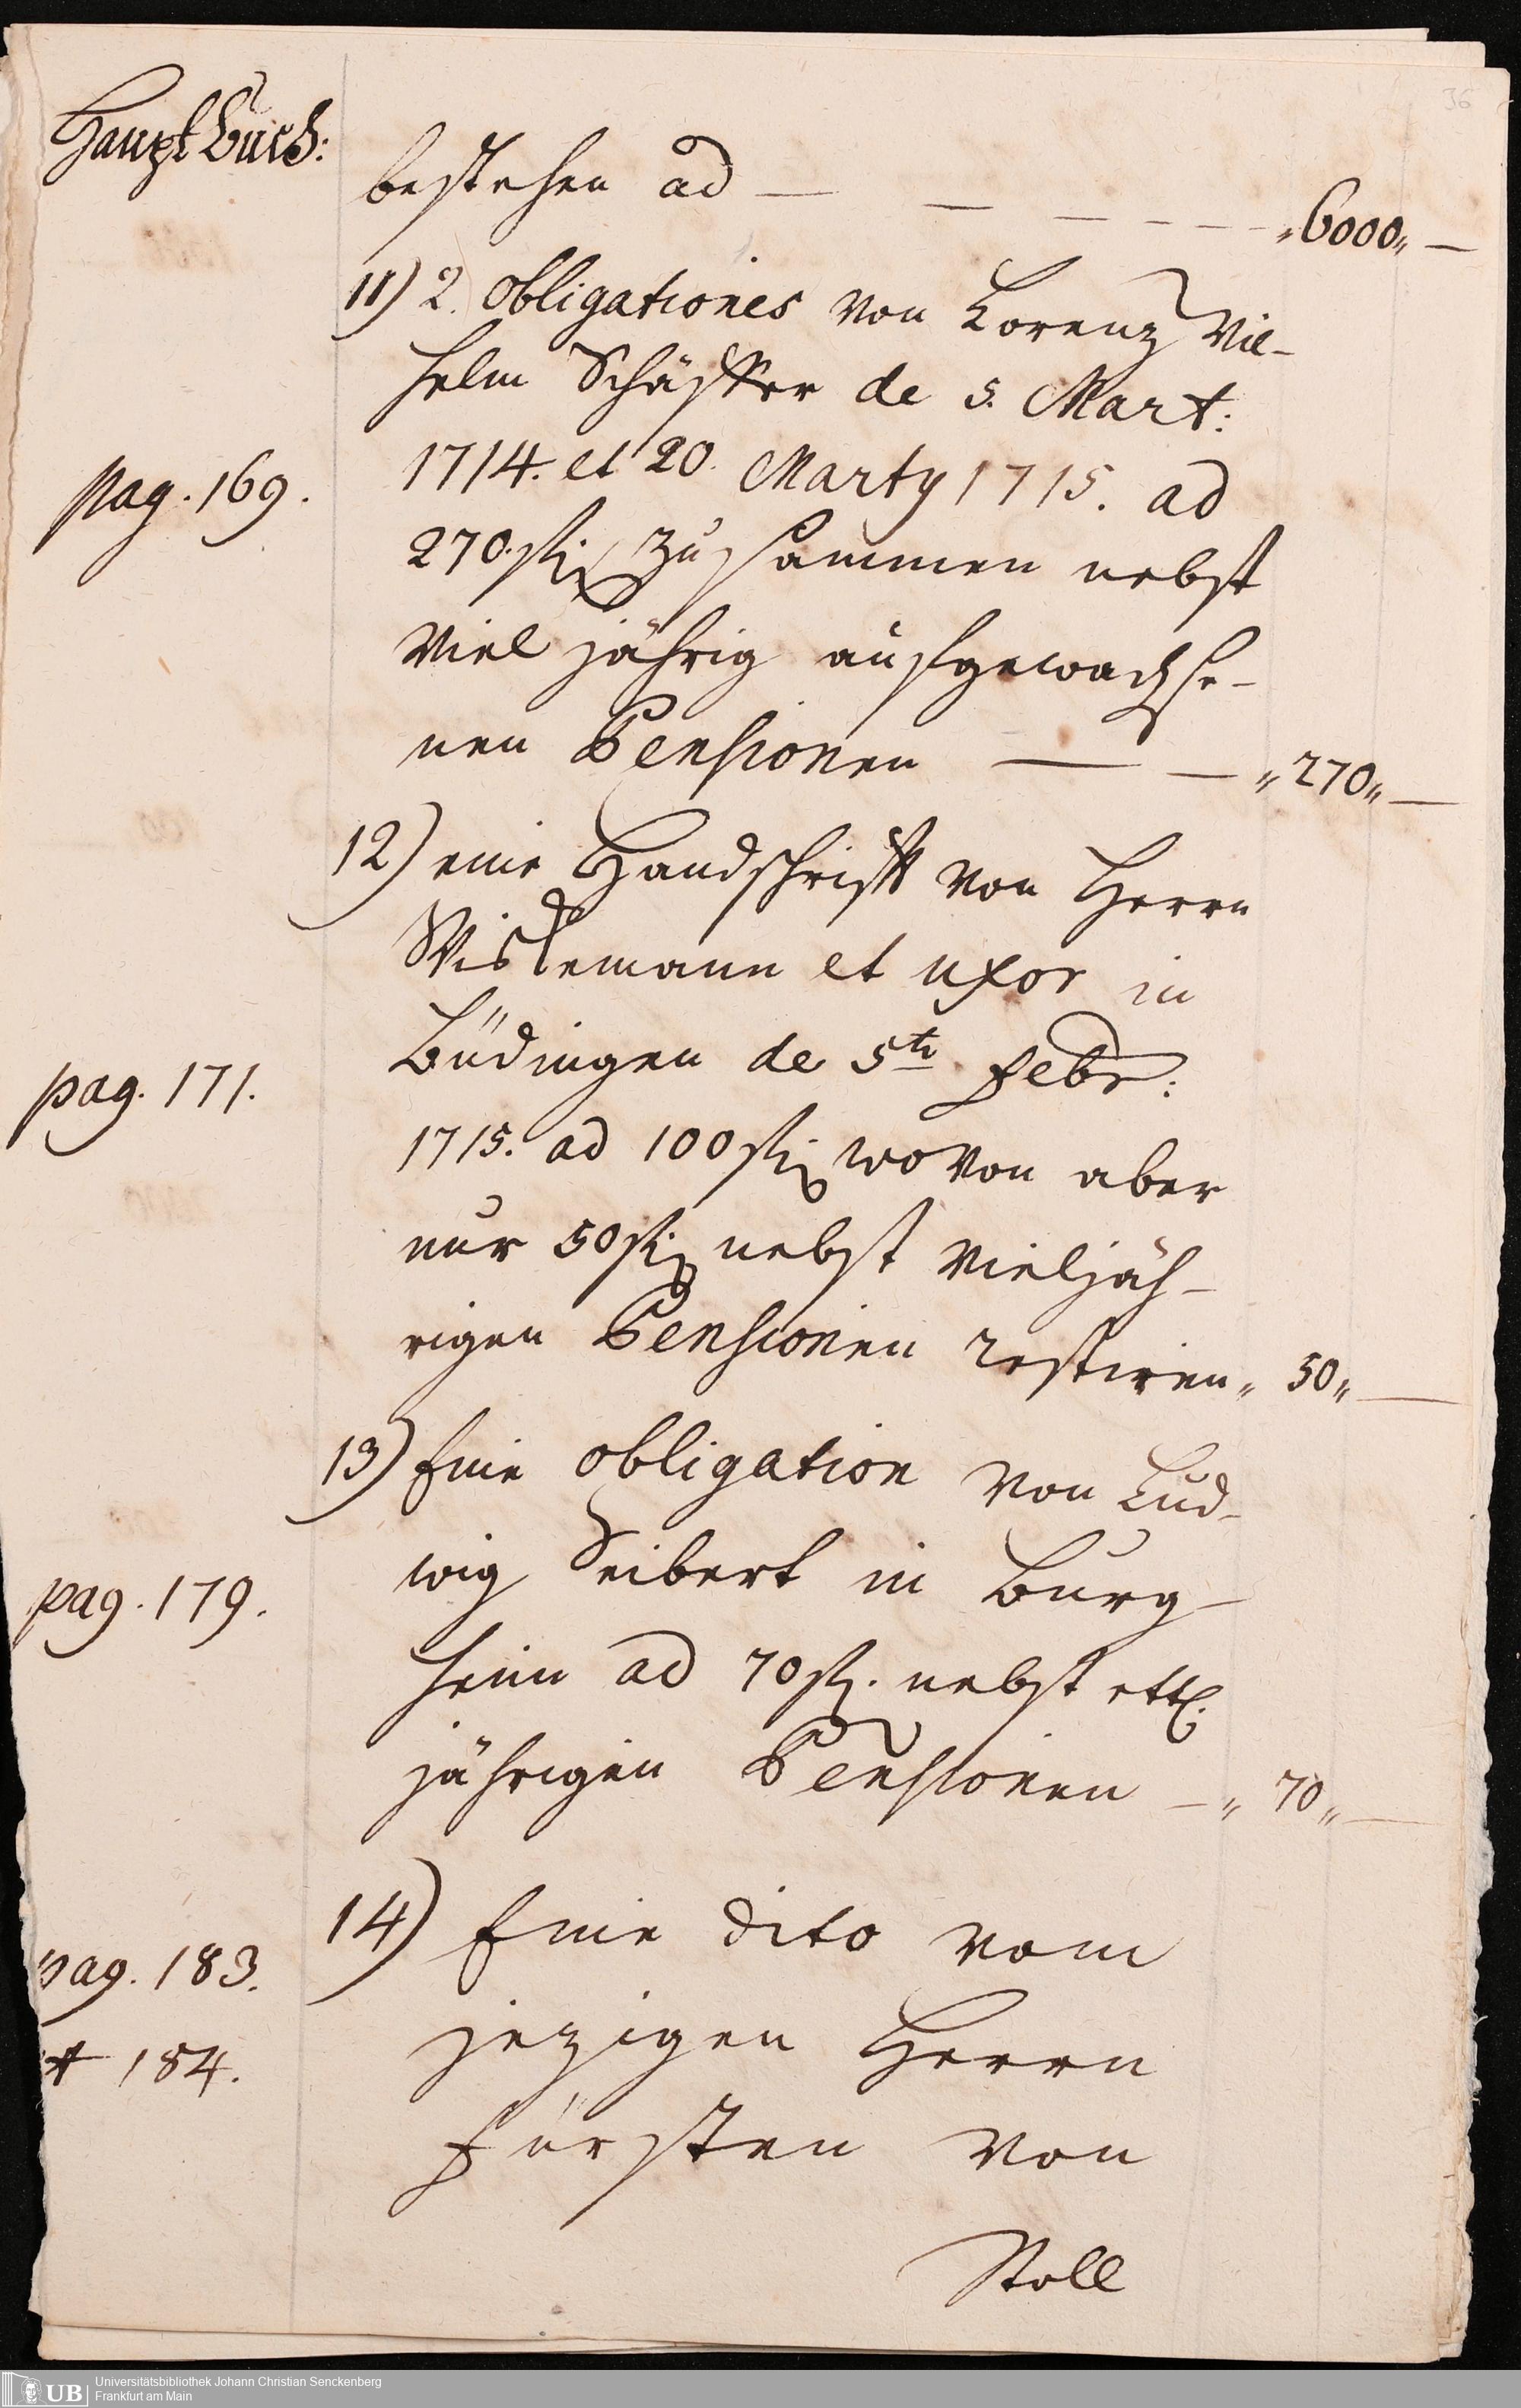 36
Haupt Buch:
bestehen ad — — — — — „6000„ —
11) 2. obligationes von Lorenz Wil-
helm Schäffer de 5. Mart:
pag. 169.
1714. et 20. Marty 1715. ad
270. fl. zusammen nebst
viel jährig aufgewachse-
nen Pensionen — — „270„ —
12) eine Handschrifft von Herrn
Wiskemann et uxor in
Büdingen de 5te Febr:
pag. 171.
1715. ad 100 fl. wovon aber
nur 50 fl. nebst vieljäh-
rigen Pensionen restiren „ 50„ —
13) Eine obligation von Lud-
wig Seibert in Burg-
pag. 179.
heim ad 70 fl. nebst ettl.
jährigen Pensionen — „ 70„ —
14) Eine dito vom
pag. 183.
jezigen Herrn
184.
Fürsten von
Stoll
UB
Universitätsbibliothek Johann Christian Senckenberg
Frankfurt am Main